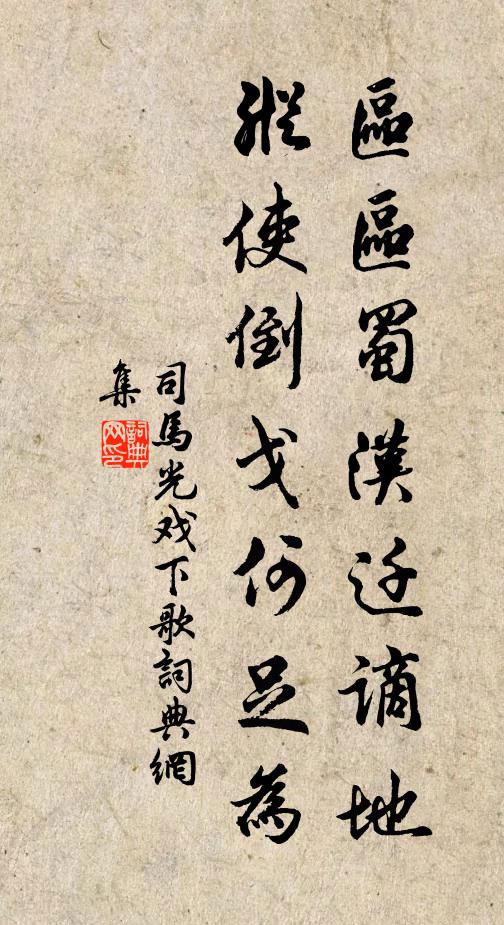 區區蜀漢迁謫地
縱使倒戈何足為
司馬光戏下歌詞典網
集
詞典
网印